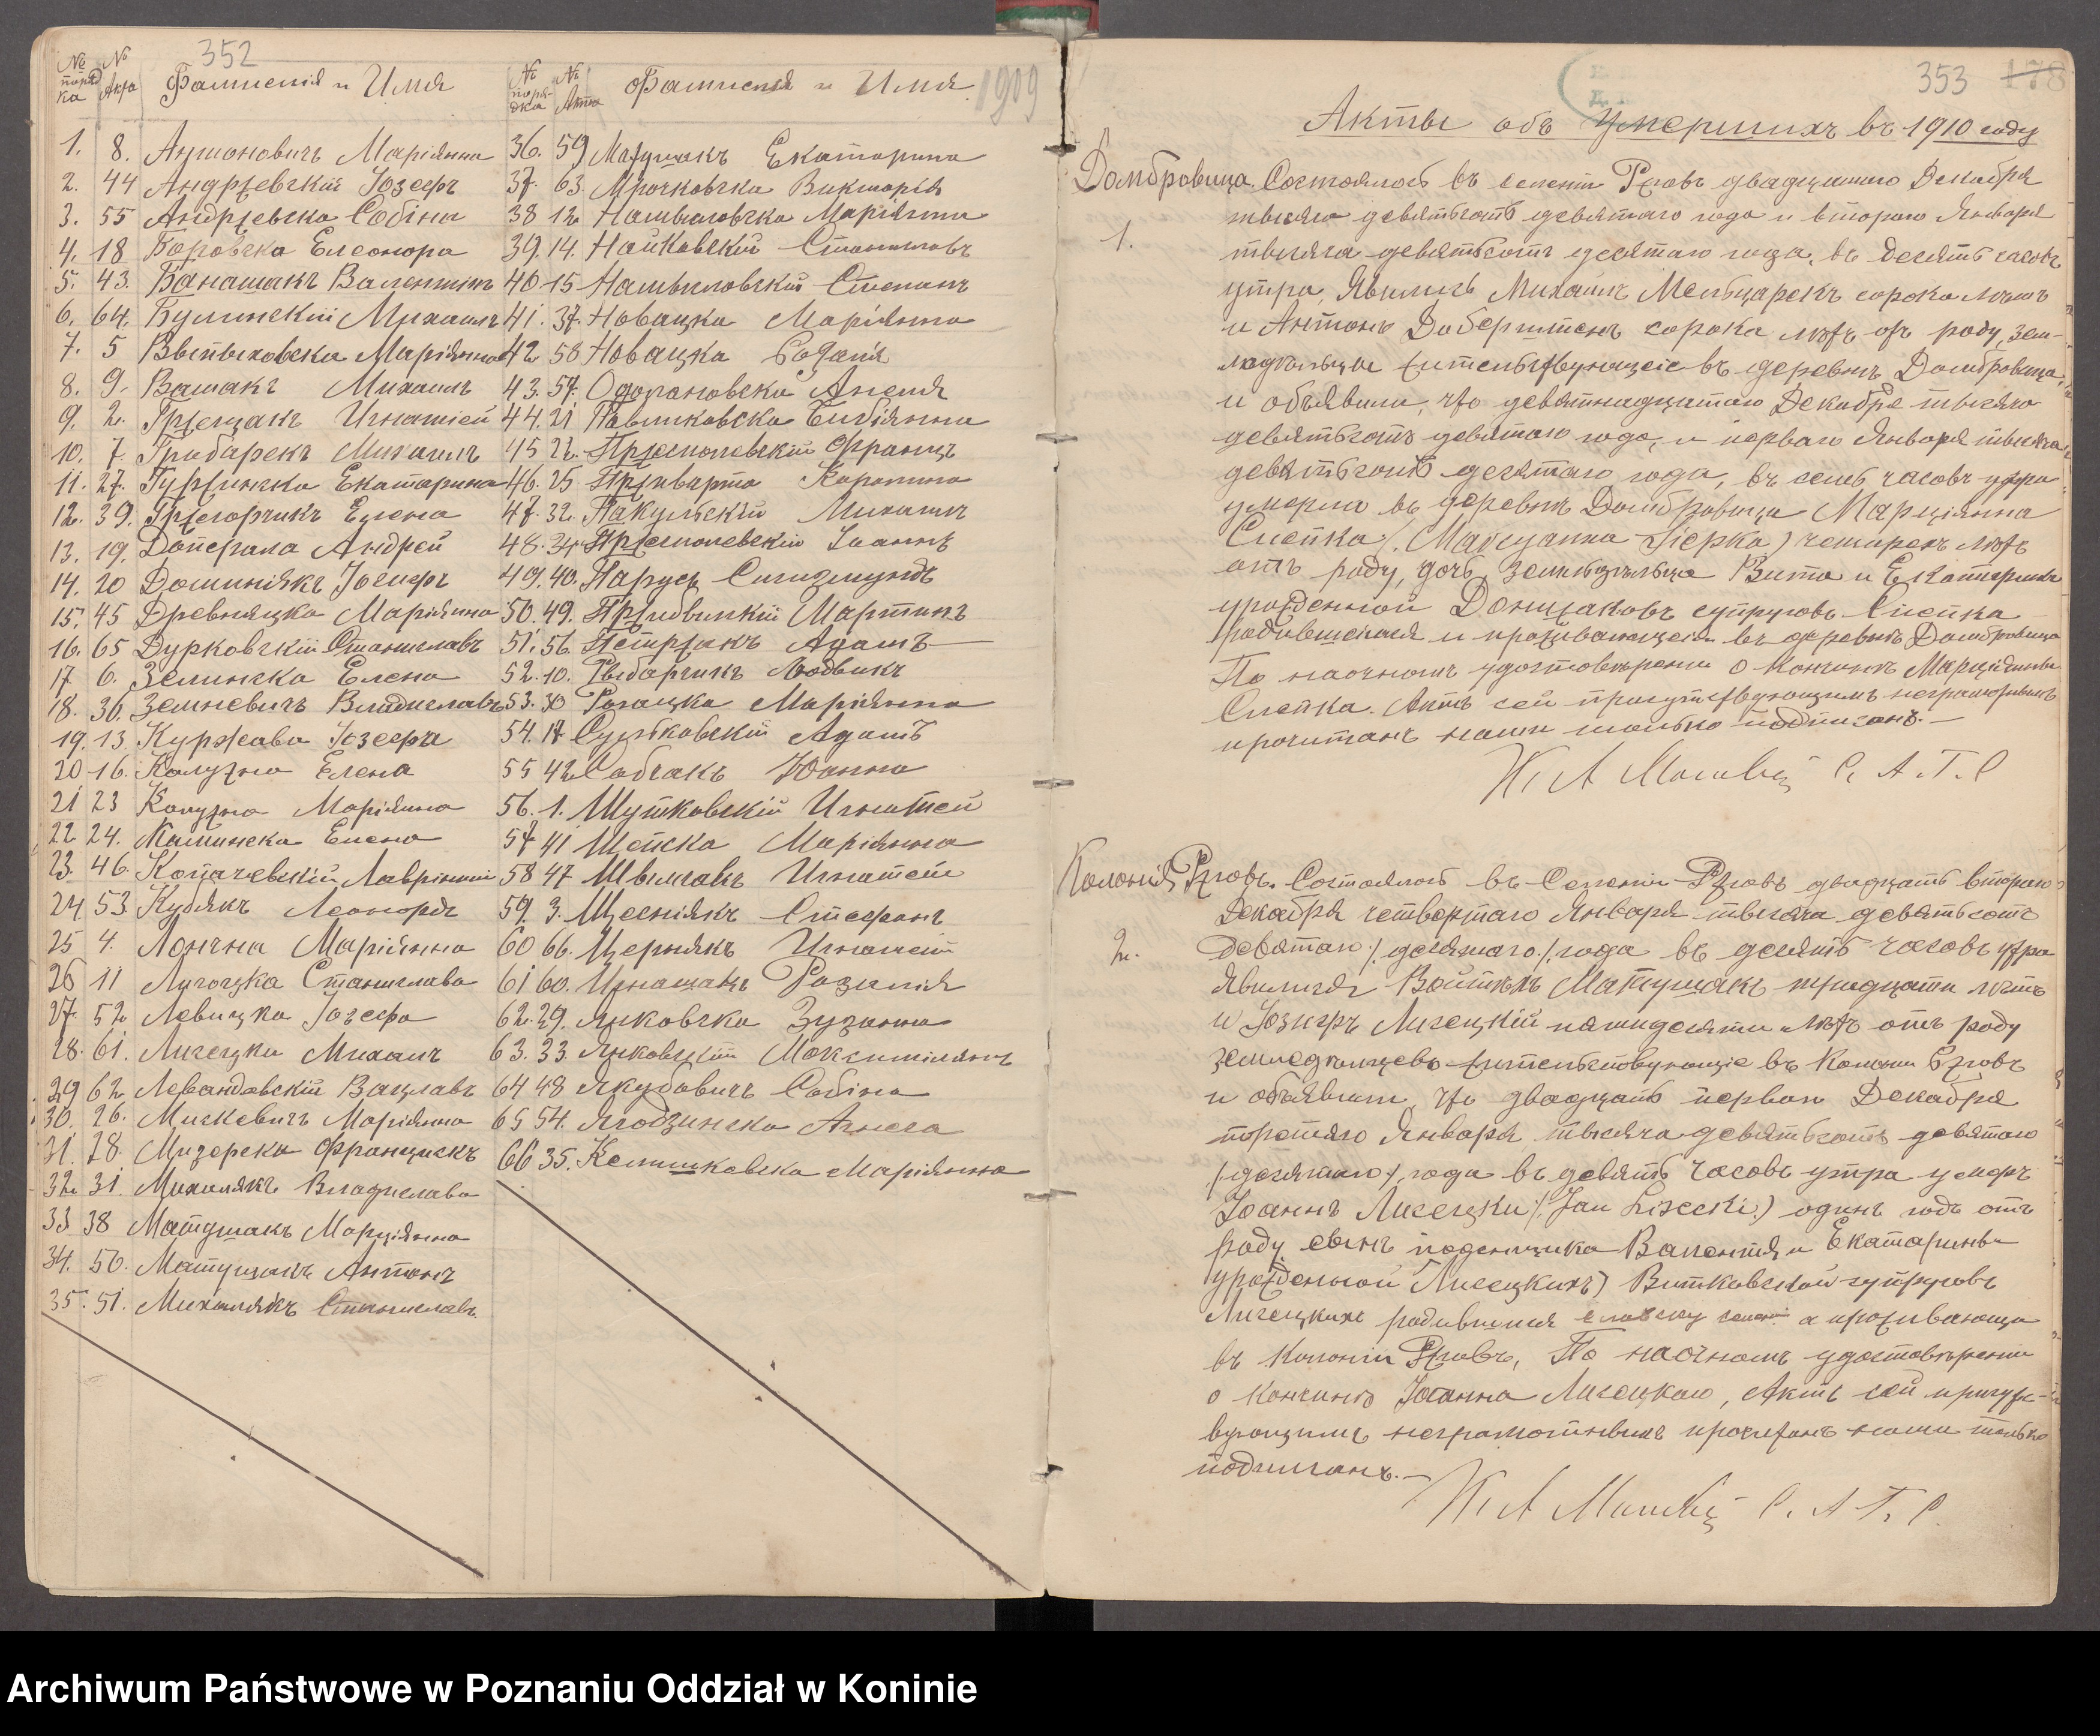 352
№ поряд ка № Акта Фамилія и Имя
1. 8. Антоновичъ Маріянна
2. 44 Андржевскій Іозефъ
3. 55 Андржевска Собіна
4. 18 Боровска Елеонора
5. 43. Банашакъ Валентій
6. 64. Булинскій Михаилъ
7. 5 Выпыховска Маріянна
8. 9. Вашакъ Михаилъ
9. 2. Гржещакъ Игнатій
10. 7. Грибарекъ Михаилъ
11. 27. Гуржинска Екатарина
12. 39. Гржегорчикъ Елена
13. 19. Доперала Андрей
14. 20 Доминіякъ Іосифъ
15. 45 Древняцка Маріянна
16. 65 Дурковскій Станиславъ
17 6. Зелинска Елена
18. 36. Земневичъ Владиславъ
19. 13. Куржава Іозефа
20 16. Калужна Елена
21 23 Калужна Маріянна
22 24. Каминска Елена
23. 46. Копачевскій Лаврінтій
24. 53 Кубякъ Леонорда
25 4. Лончна Маріянна
26 11 Лисецка Станислава
27. 52 Левицка Іозефа
28. 61. Лисецки Михаилъ
29 62 Левандовскій Вацлавъ
30. 26. Мицкевичъ Маріянна
31. 28. Мизерски Францискъ
32. 31. Михалякъ Владислава
33 38 Матушакъ Марціянна
34. 50. Матушакъ Антонъ
35. 51. Михалякъ Станиславъ
№ поря- дка № Акта Фамилія и Имя 1909
36. 59 Матушакъ Екатарина
37. 63. Мрочковска Викторія
38 12 Намысловска Маріянна
39. 14. Найковскій Станиславъ
40. 15 Намысловскій Степанъ
41. 37. Новацка Маріянна
42 58 Новацка Розалія
43. 57. Одолановска Анеля
44. 21 Павликовска Бибіянна
45 22. Пржесполевскій Францъ
46. 25 Прживарта Каролина
47. 32. Пакульскій Михаилъ
48. 34 Пржесполевскій Іоаннъ
49. 40. Парусъ Сигизмундъ
50. 49. Пржибыльскій Мартинъ
51. 56. Петржакъ Адамъ
52. 10. Рыбарчикъ Людвикъ
53. 30 Рогацка Маріянна
54. 17 Сулковскій Адамъ
55 42 Собчакъ Юанна
56. 1. Шутковскій Игнатей
57 41 Щепска Маріянна
58 47 Швинчакъ Игнатей
59. 3. Щесніякъ Стефанъ
60 66. Щерпякъ Игнатей
61 60. Игнащакъ Розалія
62. 29. Янковска Зузанна
63. 33. Янковскій Максимиліянъ
64 48 Якубовичъ Собіна
65 54. Ягодзинска Агнеса
66 35. Келишковска Маріянна
353 178
Акты объ Умершихъ въ 1910 году
Домбровица. Состоялось въ селеніи Ржговъ двадцатаго Декабря
1. тысяча девятьсотъ девятаго года и второго Января
тысяча девятьсотъ десятаго года, въ десять часовъ
утра, Явились Михаилъ Мельцарекъ сорока лѣтъ
и Антонъ Доберштенъ сорока лѣтъ отъ роду, зем-
ладѣльцы жительствующіе въ деревнѣ Домбровица,
и объявили, что девятнадцатаго Декабря тысяча
девятьсотъ девятаго года, и перваго Января тысяча
девятьсотъ десятаго года, въ семь часовъ утра
умерла въ деревнѣ Домбровица Марціянна
Слепка /. Marcyanna Slepka) четырехъ лѣтъ
отъ роду, дочь земледѣльца Вита и Екатерины
урожденной Доншаковъ супруговъ Слепка
родившейся и проживающей въ деревнѣ Домбровица
По наочномъ удостовѣреніи о кончинѣ Марціянны
Слепка. Актъ сей присутствующимъ неграмотнымъ
прочитанъ нами только подписанъ.
С. А. Г. С
Колонія Ржговъ. Состоялось въ Селеніи Ржговъ двадцать второго
Декабря четвертаго Января тысяча девятьсотъ
2. девятаго /. десятаго ./ года въ десять часовъ утра
Явились Войтѣхъ Матушакъ тридцати лѣтъ
и Іозефъ Лисецкій пятидесяти лѣтъ отъ роду
земледѣльцевъ жительствующіе въ Колоніи Ржговъ
и объявили, что двадцать перваго Декабря
третяго Января тысяча девятьсотъ девятаго
/ десятаго / года въ девять часовъ утра умеръ
Іоаннъ Лисецки /. Jan Lisecki .) одинъ годъ отъ
роду сынъ поденщика Валентія и Екатарины
урожденной Лисецкихъ) Витковской супруговъ
Лисецкихъ родившійся а проживающа
въ Колоніи Ржговъ, По наочномъ удостовѣреніи
о Кончинѣ Іоанна Лисецкаго, Актъ сей присутс-
вующимъ неграмотнымъ прочитанъ нами только
подписанъ.
С. А. Г. С.
Archiwum Państwowe w Poznaniu Oddział w Koninie